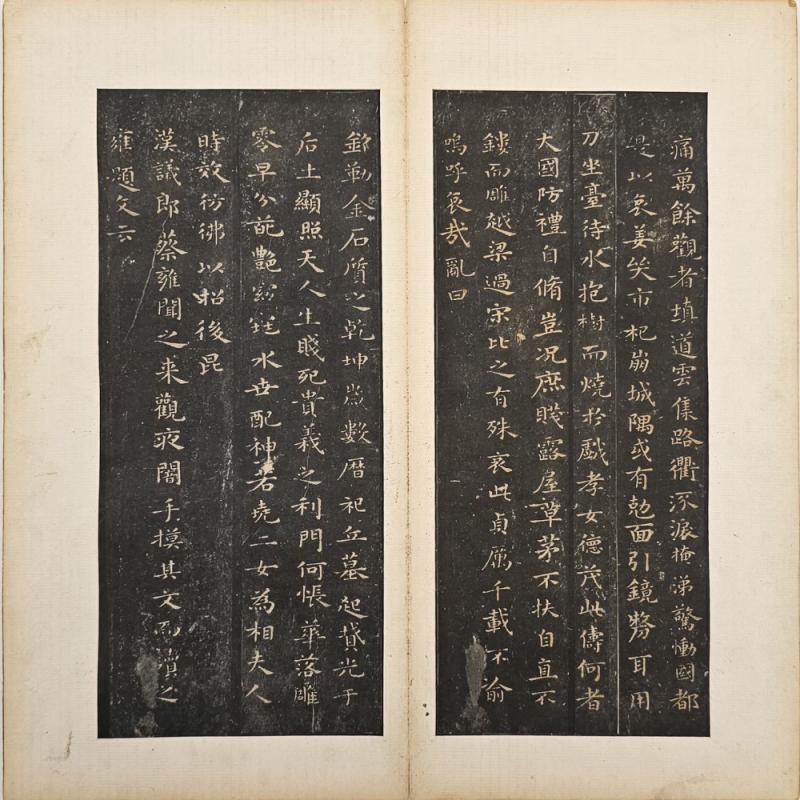 痛萬餘觀者填道雲集路衢泺淚掩涕驚慟國都
是以哀姜哭市杞崩城隅或有尅面引鏡剺耳用
刀坐臺待水抱樹而燒於戲孝女德茂此儔何者
大國防禮自脩豈况庶賤露屋草茅不扶自直不
鏤而雕越梁過宋比之有殊哀此貞厲千載不渝
嗚呼哀哉亂曰
銘勒金石質之乾坤歲數曆祀丘墓起墳光于
后土顯照天人生賤死貴義之利門何悵華落雕
零早分葩艷窈窕永世配神若堯二女為相夫人
時效彷彿以昭後昆
漢議郎蔡雍聞之来觀夜闇手摸其文而讀之
雍題文云